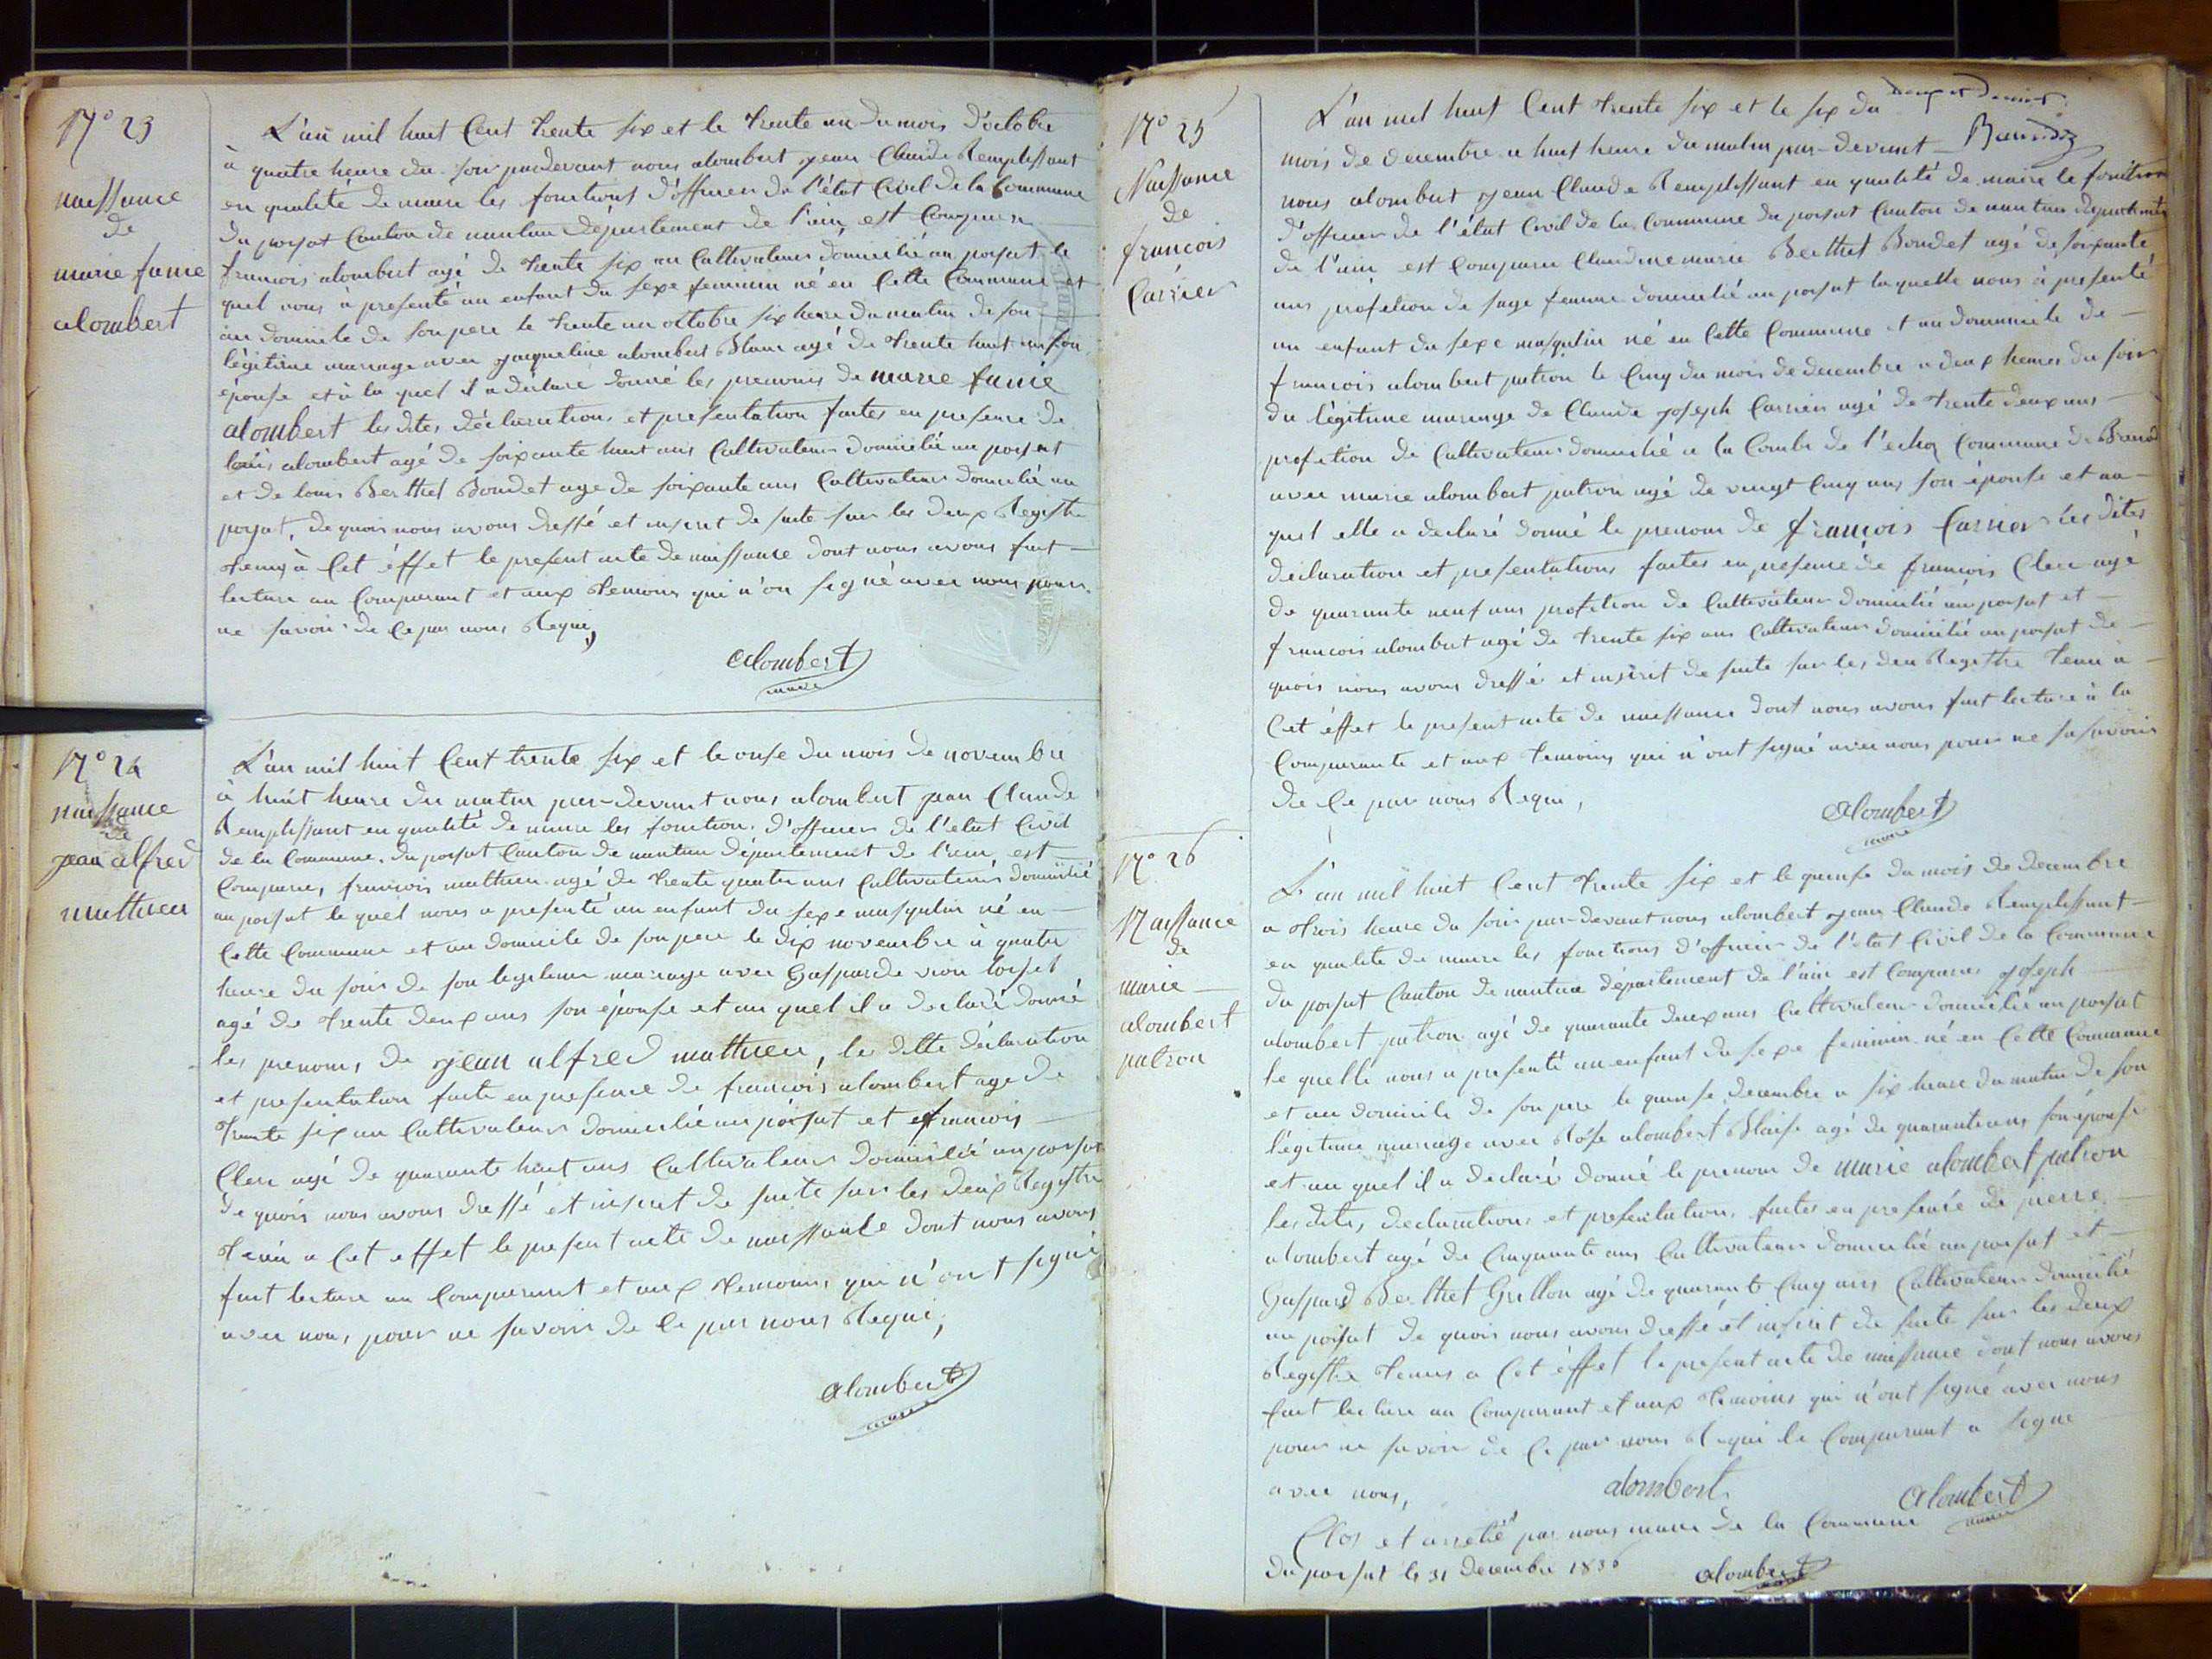 N° 23
naissance
de
marie fanie
alombert
L'an mil huit Cent trente six et le trente un du mois d'octobre
à quatre heure du soir pardevant nous alombert jean Claude Remplissant
en qualité de maire les fonctions d'officier de l'état Civil de la Commune
du poizat Canton de nantua département de l'ain, est Comparu
francois alombert agé de trente six an Cultivateur domicilié au poizat le
quel nous a presenté un enfant du sexe feminin né en Cette Commune et
au domicile de son pere le trente un octobre six heure du matin de son
légitime mariage avec jacqueline alombert Blanc agé de trente huit an son
épouse et à la quel il a déclaré donné les prenoms de marie fanie
alombert les dites déclarations et presentation faites en presence de
louis alombert agé de soixante huit ans Cultivateur domicilié au poizat
et de louis Berthet Bondet age de soixante ans Cultivateur domicilié au
poizat, de quoi nous avons dressé et inscrit de suite sur les deux Registre
tenu à Cet éffet le present acte de naissance dont nous avons fait
lecture au Comparant et aux temoins qui n'on signé avec nous pour
ne savoir de Ce par nous Requi,
alombert
maire
N° 24
naissance
de
jean alfred
mathieu
L'an mil huit Cent trente six et le onse du mois de novembre
à huit heure du matin par-devant nous alombert jean Claude
Remplissant en qualité de maire les fonction d'officier de l'etat Civil
de la Commune du poizat Canton de nantua département de l'ain est
Comparu, francois mathieu agé de trente quatre ans Cultivateur domicilié
au poizat le quel nous a presenté un enfant du sexe masqulin né en
Cette Commune et au domicile de son pere le dix novembre à quatre
heure du soir de son legitime mariage avec Gasparde
agé de trente deux ans son épouse et au quel il a declaré donné
les prenoms de jean alfred mathieu, les ditte déclaration
et presentation faite en presence de francois alombert age de
trente six an Cultivateur domicilié au poizat et francois
Clerc agé de quarante huit ans Cultivateur domicilié au poizat
de quoi nous avons dressé et inscrit de suite sur les deux Registre
tenu a Cet effet le present acte de naissance dont nous avons
fait lecture au Comparant et aux temoins qui n'ont signé
avec nous, pour ne savoir de Ce par nous Requi,
alombert
maire
N° 25
Naissance
de
françois
Carrier
L'an mil huit Cent trente six et le six du
mois de decembre a huit heure du matin par-devant
nous alombert jean Claude Remplissant en qualité de maire le fonction
d'officier de l'état Civil de la Commune du poizat Canton de nantua département
de l'ain est Comparu Claudine marie Berthet Bondet agé de soixante
ans profetion de sage femme domicilié au poizat laquelle nous à presenté
un enfant du sexe masqulin né en Cette Commune et au domicile de
francois alombert patron le Cinq du mois de decembre a deux heures du soir
du légitime mariage de Claude joseph Carrier agé de trente deux ans
profetion de Cultivateur domicilié a la Combe de l'echq Commune de
avec marie alombert patron agé de vingt Cinq ans son épouse et au
quel elle a declaré donné le prenom de françois Carrier les dites
déclaration et presentations faites en presence de francois Clerc agé
de quarante neuf ans profetion de Cultivateur domicilié au poizat et
francois alombert agé de trente six ans Cultivateur domicilié au poizat de
quoi nous avons dressé et inscrit de suite sur les deu Registre tenu a
Cet éffet le present acte de naissance dont nous avons fait lecture à la
Comparante et aux temoins qui n'ont signé avec nous pour ne savoir
de Ce par nous Requi,
alombert
maire
N° 26
Naissance
de
marie
alombert
patron
L'an mil huit Cent trente six et le quinse du mois de decembre
a trois heure du soir par-devant nous alombert jean Claude Remplissant
en qualité de maire les fonctions d'officier de l'état Civil de la Commune
du poizat Canton de nantua département de l'ain est Comparu joseph
alombert patron agé de quarante deux ans Cultivateur domicilié au poizat
le quelle nous a presenté un enfant du sexe feminin né en Cette Commune
et au domicile de son pere le quinse decembre a six heure du matin de son
légitime mariage avec Rose alombert Blaise agé de quarante ans son épouse
et au quel il a declaré donné le prenom de marie alombert patron
les dites, declarations et presentation faites en presence de pierre
alombert agé de Cinquante ans Cultivateur domicilié au poizat et
Gaspard Berthet Grillon agé de quarante Cinq ans Cultivateur domicilié
au poizat de quoi nous avons dressé et inscrit de suite sur les deux
Registre tenus a Cet éffet le present acte de naissance dont nous avons
fait lecture au Comparant et aux temoins qui n'ont signé avec nous
pour ne savoir de Ce par nous Requi le Comparant a signé
avec nous,
alombert
alombert
maire
Clos et arreté par nous maire de la Commune
du poizat le 31 decembre 1836
alombert
maire